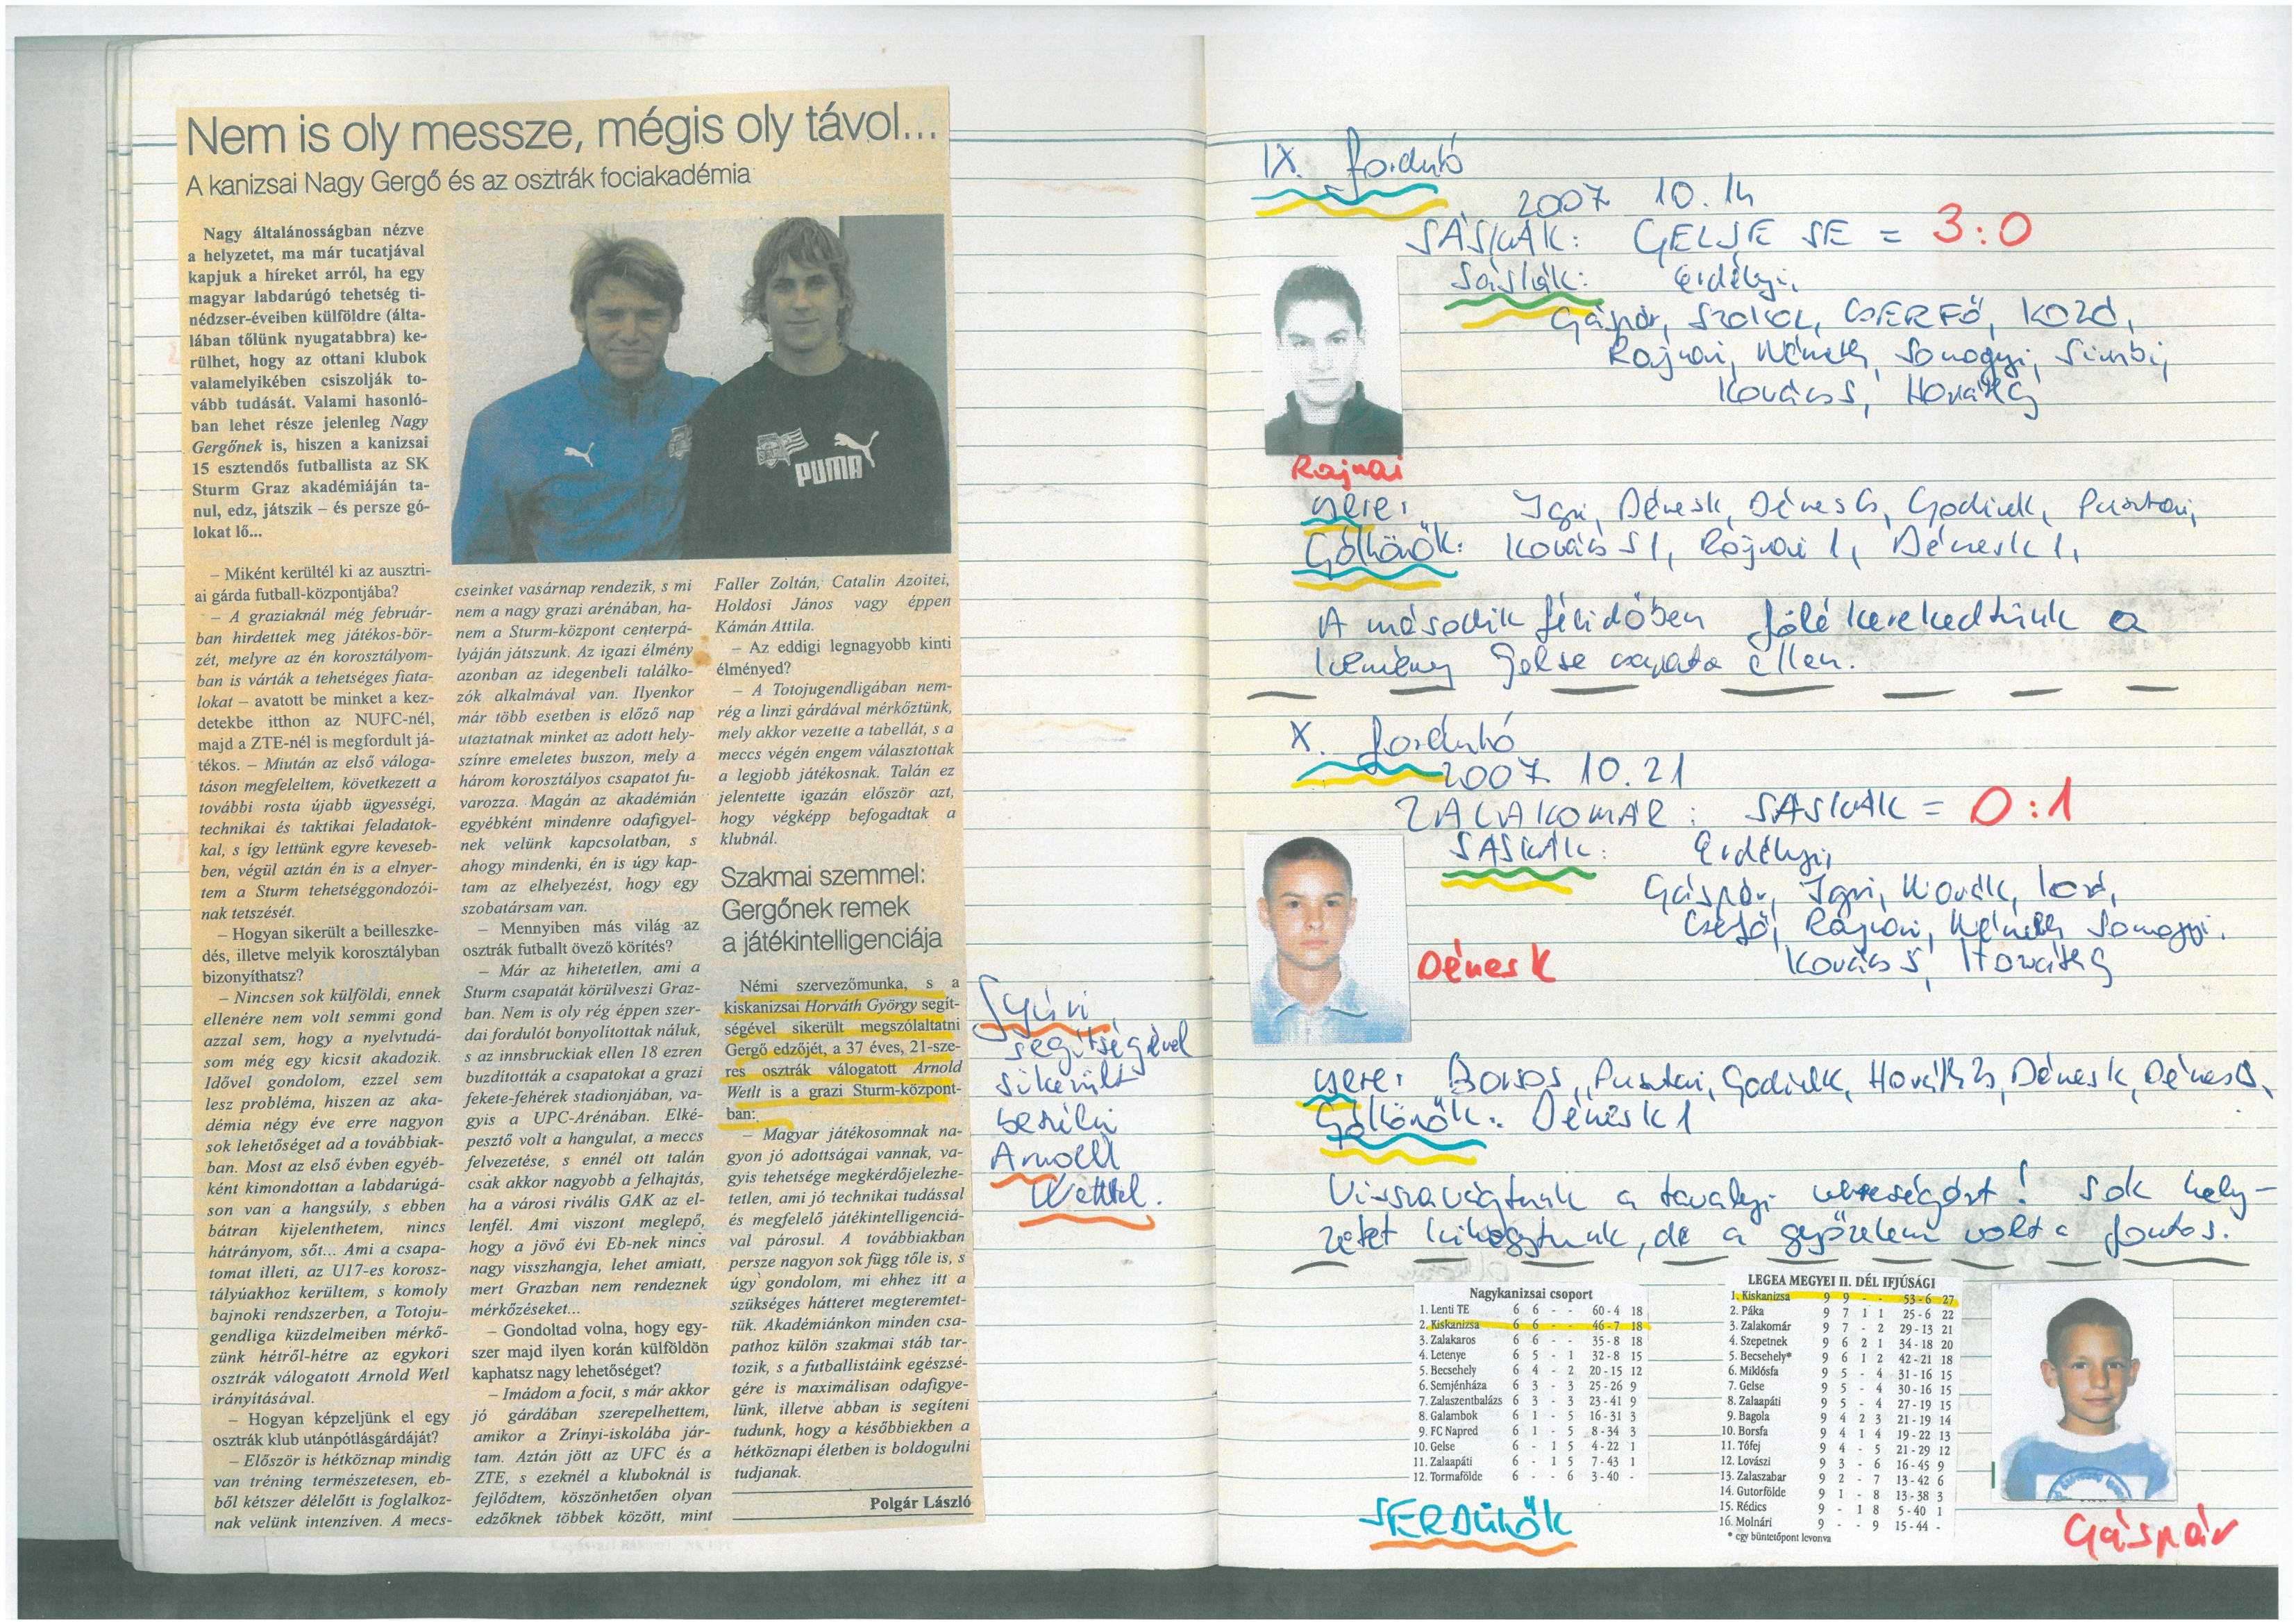 Nem is oly messze, mégis oly távol...
A kanizsai Nagy Gergő és az osztrák fociakadémia
Nagy általánosságban nézve
a helyzetet, ma már tucatjával
kapjuk a híreket arról, ha egy
magyar labdarúgó tehetség ti-
nédzser-éveiben külföldre (álta-
lában tőlünk nyugatabbra) ke-
rülhet, hogy az ottani klubok
valamelyikében csiszolják to-
vább tudását. Valami hasonló-
ban lehet része jelenleg Nagy
Gergőnek is, hiszen a kanizsai
15 esztendős futballista az SK
Sturm Graz akadémiáján ta-
nul, edz, játszik – és persze gó-
lokat lő...
PUMA
– Miként kerültél ki az ausztri-
ai gárda futball-központjába?
– A graziaknál még február-
ban hirdettek meg játékos-bör-
zét, melyre az én korosztályom-
ban is várták a tehetséges fiata-
lokat – avatott be minket a kez-
detekbe itthon az NUFC-nél,
majd a ZTE-nél is megfordult já-
tékos. – Miután az első váloga-
táson megfeleltem, következett a
további rosta újabb ügyességi,
technikai és taktikai feladatok-
kal, s így lettünk egyre keveseb-
ben, végül aztán én is a elnyer-
tem a Sturm tehetséggondozói-
nak tetszését.
– Hogyan sikerült a beilleszke-
dés, illetve melyik korosztályban
bizonyíthatsz?
– Nincsen sok külföldi, ennek
ellenére nem volt semmi gond
azzal sem, hogy a nyelvtudá-
som még egy kicsit akadozik.
Idővel gondolom, ezzel sem
lesz probléma, hiszen az aka-
démia négy éve erre nagyon
sok lehetőséget ad a továbbiak-
ban. Most az első évben egyéb-
ként kimondottan a labdarúgá-
son van a hangsúly, s ebben
bátran kijelenthetem, nincs
hátrányom, sőt... Ami a csapa-
tomat illeti, az U17-es korosz-
tályúakhoz kerültem, s komoly
bajnoki rendszerben, a Totoju-
gendliga küzdelmeiben mérkő-
zünk hétről-hétre az egykori
osztrák válogatott Arnold Wetl
irányításával.
– Hogyan képzeljünk el egy
osztrák klub utánpótlásgárdáját?
– Először is hétköznap mindig
van tréning természetesen, eb-
ből kétszer délelőtt is foglalkoz-
nak velünk intenzíven. A mecs-
cseinket vasárnap rendezik, s mi
nem a nagy grazi arénában, ha-
nem a Sturm-központ centerpá-
lyáján játszunk. Az igazi élmény
azonban az idegenbeli találko-
zók alkalmával van. Ilyenkor
már több esetben is előző nap
utaztatnak minket az adott hely-
színre emeletes buszon, mely a
három korosztályos csapatot fu-
varozza. Magán az akadémián
egyébként mindenre odafigyel-
nek velünk kapcsolatban, s
ahogy mindenki, én is úgy kap-
tam az elhelyezést, hogy egy
szobatársam van.
– Mennyiben más világ az
osztrák futballt övező körítés?
– Már az hihetetlen, ami a
Sturm csapatát körülveszi Graz-
ban. Nem is oly rég éppen szer-
dai fordulót bonyolítottak náluk,
s az innsbruckiak ellen 18 ezren
buzdították a csapatokat a grazi
fekete-fehérek stadionjában, va-
gyis a UPC-Arénában. Elké-
pesztő volt a hangulat, a meccs
felvezetése, s ennél ott talán
csak akkor nagyobb a felhajtás,
ha a városi rivális GAK az el-
lenfél. Ami viszont meglepő,
hogy a jövő évi Eb-nek nincs
nagy visszhangja, lehet amiatt,
mert Grazban nem rendeznek
mérkőzéseket...
– Gondoltad volna, hogy egy-
szer majd ilyen korán külföldön
kaphatsz nagy lehetőséget?
– Imádom a focit, s már akkor
jó gárdában szerepelhettem,
amikor a Zrínyi-iskolába jár-
tam. Aztán jött az UFC és a
ZTE, s ezeknél a kluboknál is
fejlődtem, köszönhetően olyan
edzőknek többek között, mint
Faller Zoltán, Catalin Azoitei,
Holdosi János vagy éppen
Kámán Attila.
– Az eddigi legnagyobb kinti
élményed?
– A Totojugendligában nem-
rég a linzi gárdával mérkőztünk,
mely akkor vezette a tabellát, s a
meccs végén engem választottak
a legjobb játékosnak. Talán ez
jelentette igazán először azt,
hogy végképp befogadtak a
klubnál.
Szakmai szemmel:
Gergőnek remek
a játékintelligenciája
Némi szervezőmunka, s a
kiskanizsai Horváth György segít-
ségével sikerült megszólaltatni
Gergő edzőjét, a 37 éves, 21-sze-
res osztrák válogatott Arnold
Wetlt is a grazi Sturm-központ-
ban:
– Magyar játékosomnak na-
gyon jó adottságai vannak, va-
gyis tehetsége megkérdőjelezhe-
tetlen, ami jó technikai tudással
és megfelelő játékintelligenciá-
val párosul. A továbbiakban
persze nagyon sok függ tőle is, s
úgy gondolom, mi ehhez itt a
szükséges hátteret megteremtet-
tük. Akadémiánkon minden csa-
pathoz külön szakmai stáb tar-
tozik, s a futballistáink egészsé-
gére is maximálisan odafigye-
lünk, illetve abban is segíteni
tudunk, hogy a későbbiekben a
hétköznapi életben is boldogulni
tudjanak.
Polgár László
Gyuri
segítségével
sikerült
beszélni
Arnold
Wettel.
IX. forduló
2007 10.14
SÁSKÁK: GELSE SE = 3:0
Sáskák: Erdélyi,
Gáspár, SZOKOL, CSERFŐ, KOZD,
Rajnai, Németh, Somogyi, Simbi,
Kovács S, Horváth G
Rajnai
csere: Igri, Dénesk, Dénes G, Godinek, Pusztai,
Góllövők: Kovács S 1, Rajnai 1, Dénesk 1,
A második félidőben fölé kerekedtünk a
kemény Gelse csapata ellen.
X. forduló
2007. 10.21
ZALAKOMÁR: SÁSKÁK = 0:1
SÁSKÁK: Erdélyi,
Gáspár, Igri, Novák, Kozd,
Cserfő, Rajnai, Németh, Somogyi,
Kovács S, Horváth G
Dénes K
csere: Boros, Pusztai, Godinek, Horváth B, Dénesk, Dénes G,
Góllövők: Dénesk 1
Visszavágtunk a tavalyi vereségért! Sok hely-
zetet kihagytunk, de a győzelem volt a fontos.
Nagykanizsai csoport
1. Lenti TE 6 6 - - 60-4 18
2. Kiskanizsa 6 6 - - 46-7 18
3. Zalakaros 6 6 - - 35-8 18
4. Letenye 6 5 - 1 32-8 15
5. Becsehely 6 4 - 2 20-15 12
6. Semjénháza 6 3 - 3 25-26 9
7. Zalaszentbalázs 6 3 - 3 23-41 9
8. Galambok 6 1 - 5 16-31 3
9. FC Napred 6 1 - 5 8-34 3
10. Gelse 6 - 1 5 4-22 1
11. Zalaapáti 6 - 1 5 7-43 1
12. Tormafölde 6 - - 6 3-40 -
SERDÜLŐK
LEGEA MEGYEI II. DÉL IFJÚSÁGI
1. Kiskanizsa 9 9 - - 53-6 27
2. Páka 9 7 1 1 25-6 22
3. Zalakomár 9 7 - 2 29-13 21
4. Szepetnek 9 6 2 1 34-18 20
5. Becsehely* 9 6 1 2 42-21 18
6. Miklósfa 9 5 - 4 31-16 15
7. Gelse 9 5 - 4 30-16 15
8. Zalaapáti 9 5 - 4 27-19 15
9. Bagola 9 4 2 3 21-19 14
10. Borsfa 9 4 1 4 19-22 13
11. Tófej 9 4 - 5 21-29 12
12. Lovászi 9 3 - 6 16-45 9
13. Zalaszabar 9 2 - 7 13-42 6
14. Gutorfölde 9 1 - 8 13-38 3
15. Rédics 9 - 1 8 5-40 1
16. Molnári 9 - - 9 15-44 -
* egy büntetőpont levonva
Gáspár